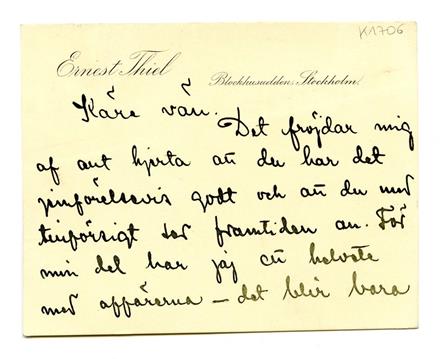 K1706
Ernest Thiel
Blockhusudden, Stockholm.
Käre vän.
Det fröjdar mig
af allt hjerta att du har det
jemförelsevis godt och att du med
tillförsigt ser framtiden an. För
min del har jag ett helvete
med affärerna – det blir bara